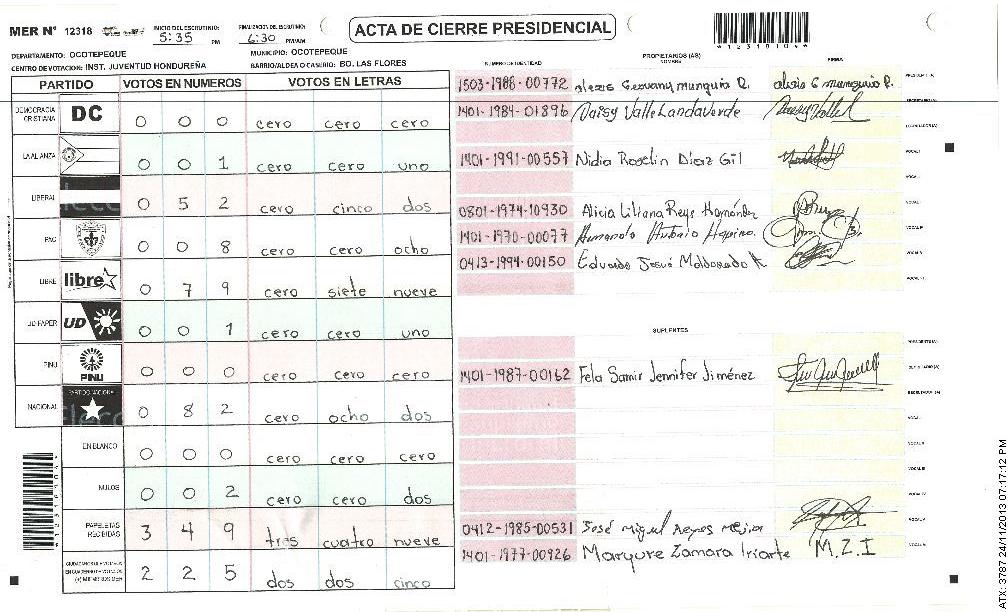 MER N° 12318
INICIO DEL ESCRUTINIO:
5:35 PM
FINALIZACION DEL ESCRUTINIO:
6:30 PM/AM
ACTA DE CIERRE PRESIDENCIAL
DEPARTAMENTO: OCOTEPEQUE
MUNICIPIO: OCOTEPEQUE
CENTRO DE VOTACION: INST. JUVENTUD HONDUREÑA
BARRIO/ALDEA O CASERIO: BO. LAS FLORES
PARTIDO VOTOS EN NUMEROS VOTOS EN LETRAS
DEMOCRACIA CRISTIANA DC 0 0 0 cero cero cero
LA ALIANZA 0 0 1 cero cero uno
LIBERAL 0 5 2 cero cinco dos
PAC 0 0 8 cero cero ocho
LIBRE libre 0 7 9 cero siete nueve
UD-FAPER UD 0 0 1 cero cero uno
PINU PINU 0 0 0 cero cero cero
NACIONAL 0 8 2 cero ocho dos
EN BLANCO 0 0 0 cero cero cero
NULOS 0 0 2 cero cero dos
PAPELETAS RECIBIDAS 3 4 9 tres cuatro nueve
2 2 5 dos dos cinco
NUMERO DE IDENTIDAD
PROPIETARIOS (AS)
NOMBRE
FIRMA
1503-1988-00772 alexis Geovany munguia R.
1401-1984-01896 Daisy Valle Landaverde
1401-1991-00557 Nidia Roselin Diaz Gil
0801-1974-10930 Alicia Liliana Reys Hernández
1401-1970-00077 Antonio
0413-1994-00150 Eduardo Josué Maldonado
SUPLENTES
1401-1987-00162 Fela Samir Jennifer Jiménez
0412-1985-00531 José Miguel Reyes Mejia
1401-1977-00926 Maryure Zamora Iriarte M.Z.I
ATX: 3787 24/11/2013 07:17:12 PM